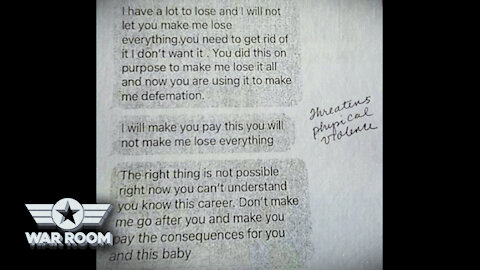 I have a lot to lose and I will not
let you make me lose
everything.you need to get rid of
it I don't want it . You did this on
purpose to make me lose it all
and now you are using it to make
me defemation.
I will make you pay this you will
not make me lose everything
threatens
physical
violence
The right thing is not possible
right now you can't understand
you know this career. Don't make
me go after you and make you
pay the consequences for you
and this baby
WAR ROOM